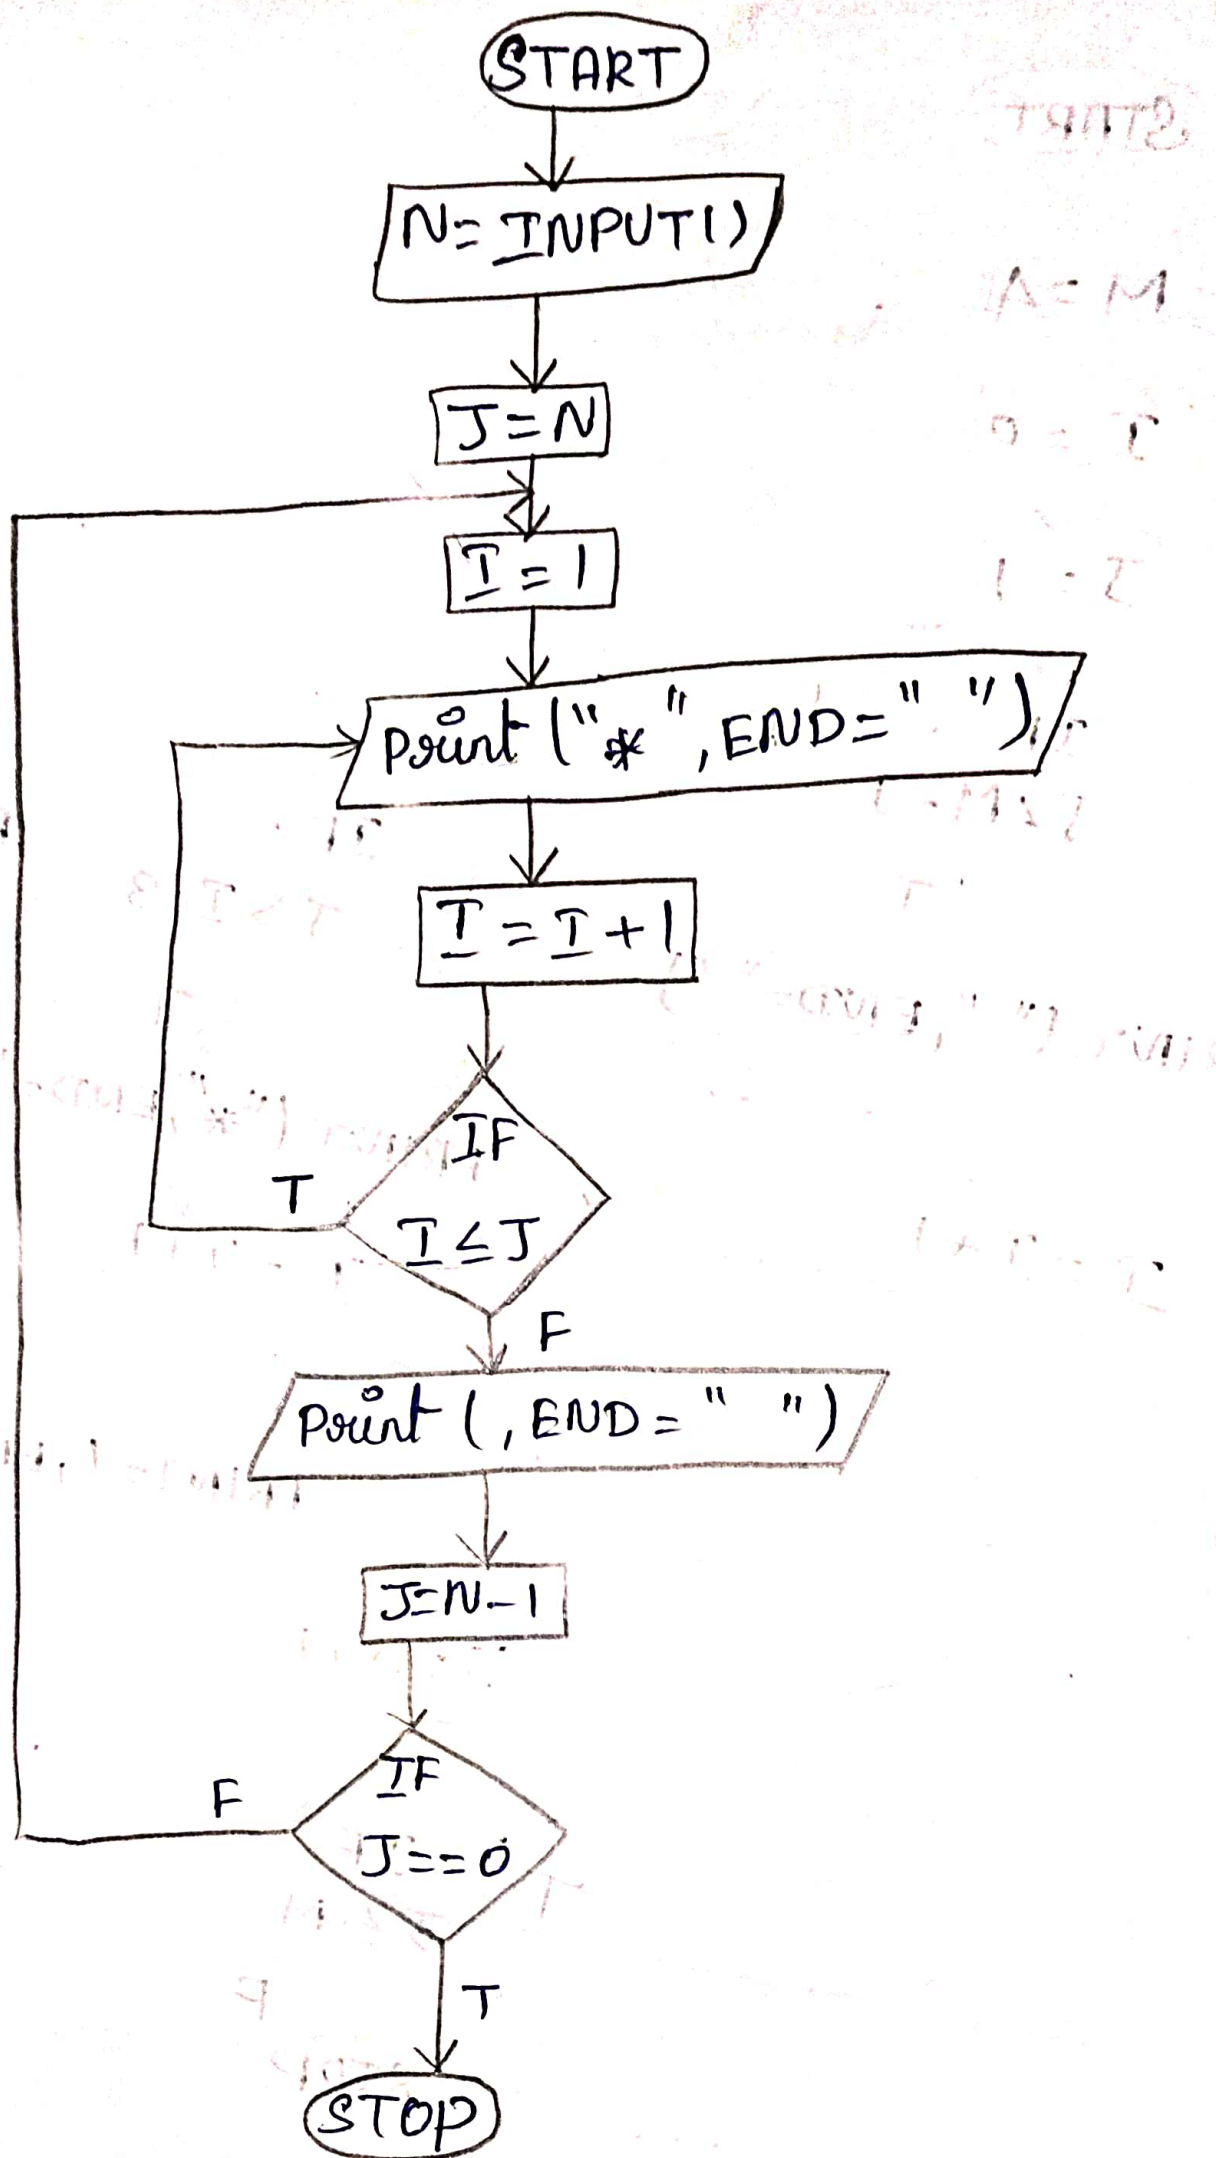 START
N= INPUT()
J=N
I=1
Print ("*", END=" ")
I=I+1
IF
T
I≤J
F
Print (, END=" ")
J=N-1
IF
F
J==0
T
STOP